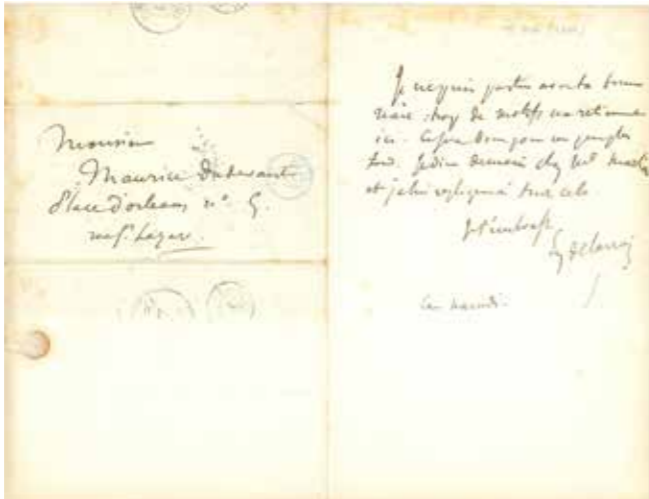 Monsieur
Maurice Dudevant
Place d'orleans n° 5.
rue St Lazare.
Je ne puis partir avant la
: trop de motifs me retiennent
ici. Ce sera donc pour un peu plus
tard. Je dine demain chez Me
et je lui expliquerai tout cela
Je t'embrasse
Eg Delacroix
Ce mardi.